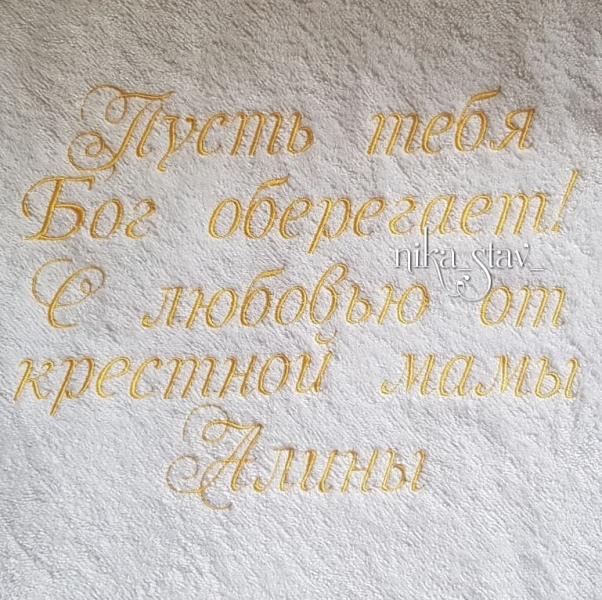 Пусть тебя
Бог оберегает!
nika_stav_
С любовью от
крестной мамы
Алины